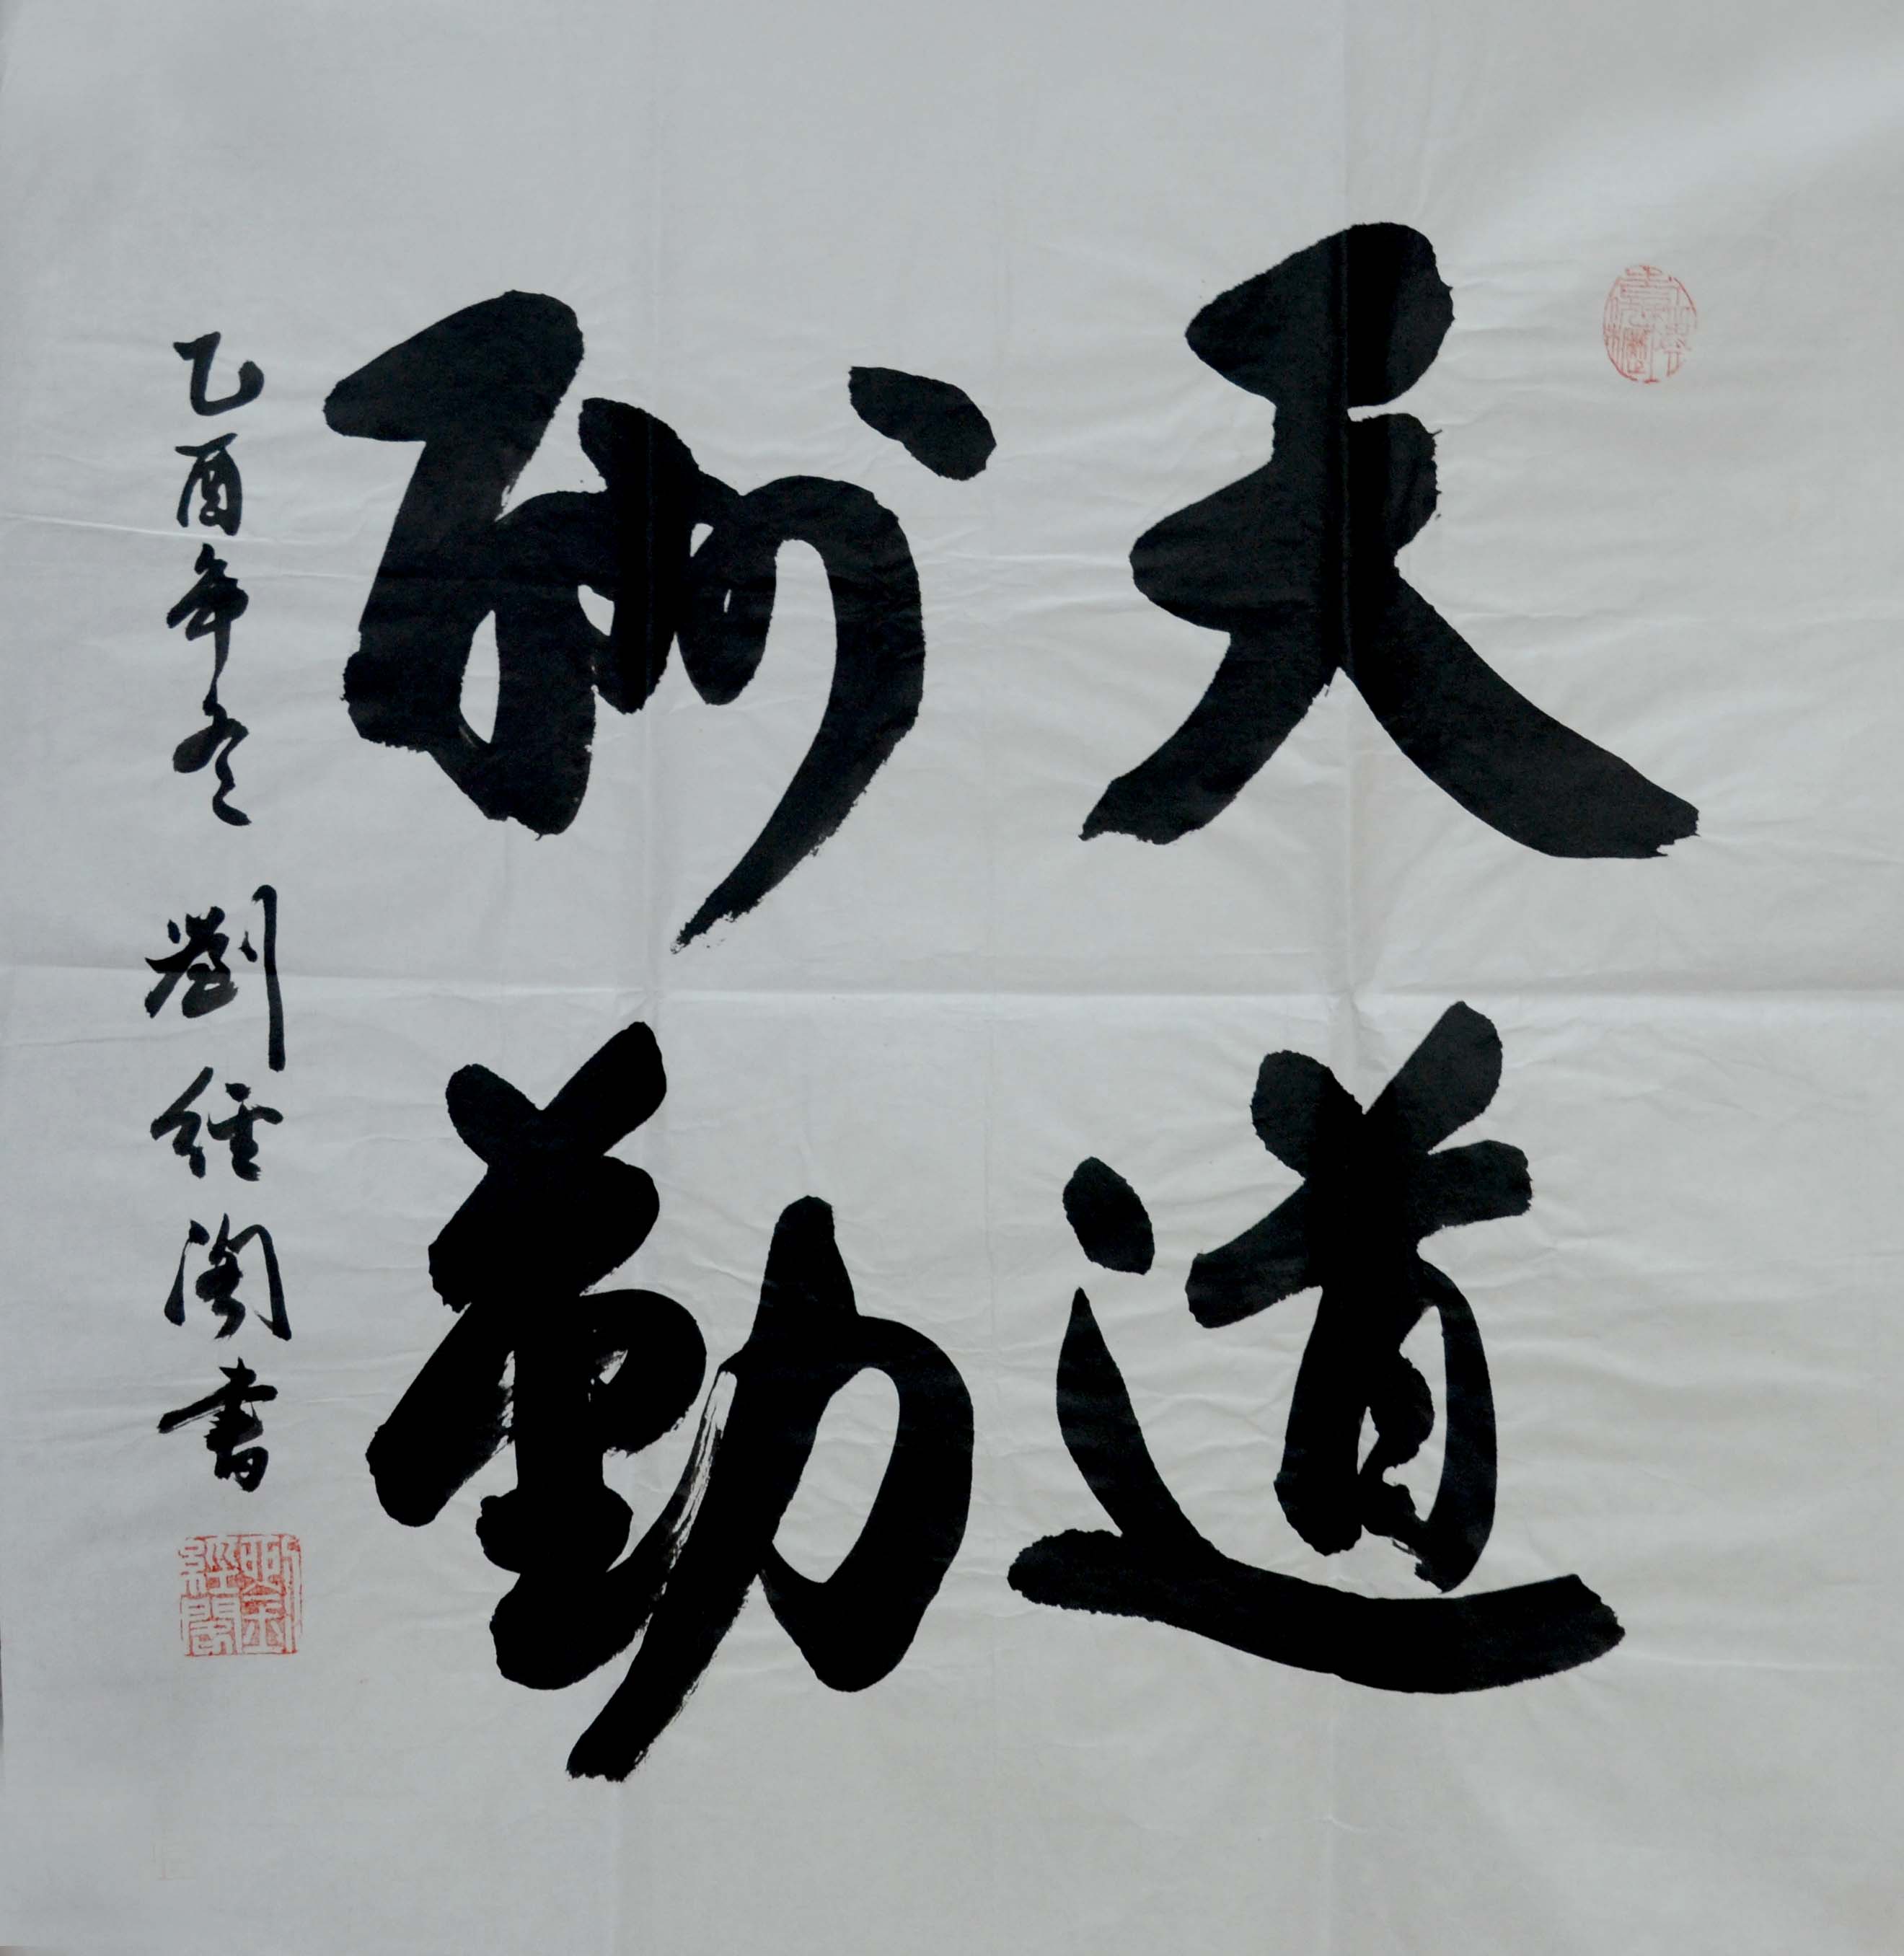 天道
酬勤
乙酉年冬 劉經閣書